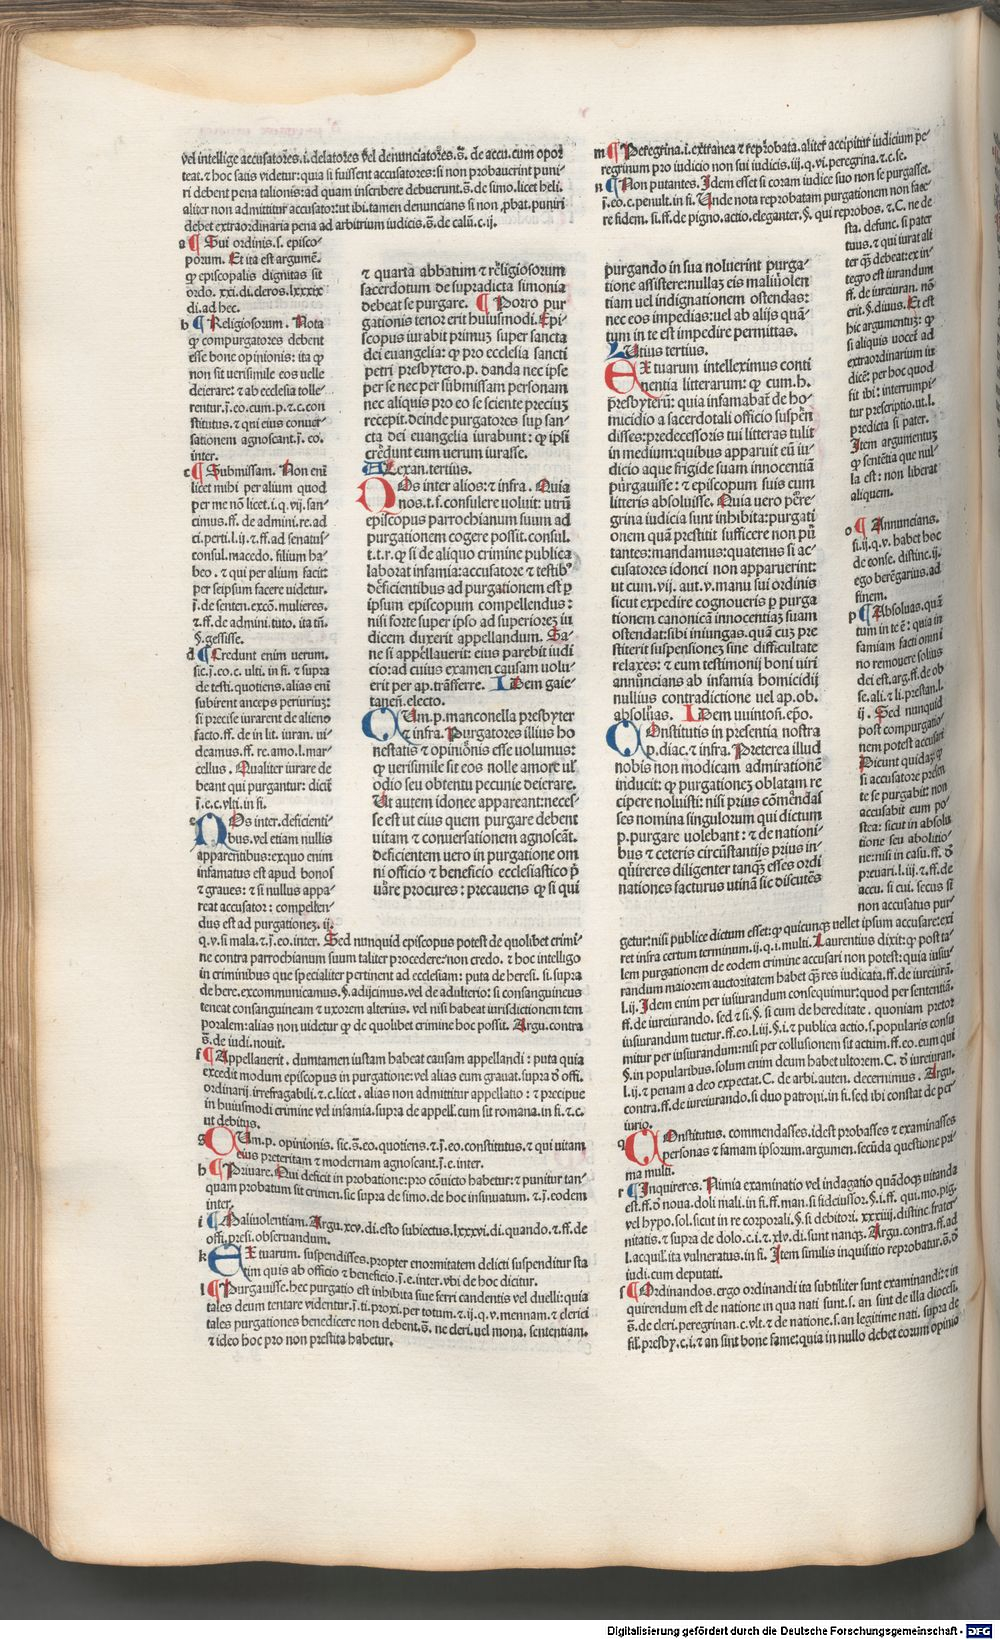 vel intellige accusatores.i.delatores vel denunciatores.s̄. de accu.cum opor
teat.⁊ hoc satis videtur:quia si fuissent accusatores:si non probauerint puni
ri debent pena talionis:ad quam inscribere debuerunt.s̄.de simo.licet heli.
aliter non admittitur accusator:ut ibi.tamen denuncians si non ꝓbat.puniri
debet extraordinaria pena ad arbitrium iudicis.s̄.de calū.c.ij.
a ¶ Sui ordinis.s. episco-
porum. Et ita est argumē.
ꝙ episcopalis dignitas sit
ordo. xxi.di.cleros.lxxxix
di.ad hec.
b ¶ Religiosorum. Nota
ꝙ compurgatores debent
esse bone opinionis: ita ꝙ
non sit verisimile eos velle
deierare: ⁊ ab ecclesia tolle-
rentur.j̄.eo.cum.p.⁊.c.con
stitutus.⁊ qui eius conuer-
sationem agnoscant.j̄. eo.
inter.
c ¶ Submissam. Non eni̅
licet mihi per alium quod
per me nō licet.i.q.vij.san-
cimus.ff. de admini.re.ad
ci.perti.l.ij.⁊.ff.ad senatus-
consul.macedo. filium ha-
beo. ⁊ qui per alium facit:
per seipsum facere uidetur.
j̄.de senten.excō.mulieres.
⁊.ff.de admini.tuto. ita tn̄.
§.gessisse.
d ¶ Credunt enim uerum.
sic.j̄.eo.c. ulti. in fi. ⁊ supra
de testi.quotiens.alias eni̅
subirent anceps periuriuȝ:
si precise iurarent de alieno
facto.ff. de in lit. iuran. ui-
deamus.ff. re. amo.l.mar-
cellus. Qualiter iurare de
beant qui purgantur: dicit̄
j̄.e.c.vlti.in fi.
e NOs inter.deficienti-
bus.vel etiam nullis
apparentibus:exquo enim
infamatus est apud bonos
⁊ graues: ⁊ si nullus appa-
reat accusator: compellen-
dus est ad purgationeȝ.ij.
q.v.si mala.⁊.j̄.eo.inter. Sed nunquid episcopus potest de quolibet crimi-
ne contra parrochianum suum taliter procedere:non credo. ⁊ hoc intelligo
in criminibus que specialiter pertinent ad ecclesiam: puta de heresi. si. supra
de here.excommunicamus.§.adijcimus.vel de adulterio: si consanguineus
tencat consanguineam ⁊ uxorem alterius. vel nisi habeat iurisdictionem tem
poralem:alias non uidetur ꝙ de quolibet crimine hoc possit. Argu.contra
s̄.de iudi.nouit.
f ¶ Appellauerit. dumtamen iustam habeat causam appellandi: puta quia
excedit modum episcopus in purgatione:vel alias eum grauat.supra ꝺ offi.
ordinarij.irrefragabili.⁊.c.licet. alias non admittitur appellatio: ⁊ precipue
in huiusmodi crimine vel infamia.supra de appell.cum sit romana.in fi.⁊.c.
ut debitus.
g CUm.p.opinionis. sic.s̄.eo.quotiens.⁊.j̄.eo.constitutus.⁊ qui uitam
eius preteritam ⁊ modernam agnoscant.j̄.c.inter.
h ¶ Priuare. Qui deficit in probatione:pro cōuicto habetur:⁊ punitur tan-
quam probatum sit crimen.sic supra de simo.de hoc insinuatum. ⁊.j̄.eodem
inter.
i ¶ Maliuolentiam. Argu.xcv.di.esto subiectus.lxxxvi.di.quando.⁊.ff.de
offi.presi.obseruandum.
k EX tuarum. suspendisses.propter enormitatem delicti suspenditur ista
tim quis ab officio ⁊ beneficio.j̄.e.inter.vbi de hoc dicitur.
l ¶ Purgauisse.hec purgatio est inhibita siue ferri candentis vel duelli:quia
tales deum tentare videntur.j̄.ti.proxi.per totum.⁊.ij.q.v.mennam.⁊ clerici
tales purgationes benedicere non debent.s̄. ne cleri.uel mona. sententiam.
⁊ ideo hoc pro non prestita habetur.
⁊ quarta abbatum ⁊ religiosorum
sacerdotum de supradicta simonia
debeat se purgare. ¶ Porro pur
gationis tenor erit huiusmodi. Epi-
scopus iurabit primuȝ super sancta
dei euangelia: ꝙ pro ecclesia sancti
petri presbytero.p. danda nec ipse
per se nec per submissam personam
nec aliquis pro eo se sciente preciuȝ
recepit.deinde purgatores sup san-
cta dei euangelia iurabunt: ꝙ ipsi
credunt eum uerum iurasse.
ALexan.tertius.
NOs inter alios:⁊ infra. Quia
nos.t.f.consulere uoluit: utrū
episcopus parrochianum suum ad
purgationem cogere possit.consul.
t.t.r.ꝙ si de aliquo crimine publica
laborat infamia:accusatore ⁊ testib⁹
deficientibus ad purgationem est p̱
ipsum episcopum compellendus:
nisi forte super ipso ad superioreȝ iu
dicem duxerit appellandum. Sa-
ne si appellauerit: eius parebit iudi
cio:ad cuius examen causam uolu-
erit per ap.trāsferre. IDem gaie-
tanen̄.electo.
CUm.p.manconella presbyter
⁊ infra. Purgatores illius ho
nestatis ⁊ opinionis esse uolumus:
ꝙ uerisimile sit eos nolle amore ul̄
odio seu obtentu pecunie deierare.
Ut autem idonee appareant:neces-
se est ut eius quem purgare debent
uitam ⁊ conuersationem agnoscāt.
deficientem uero in purgatione om
ni officio ⁊ beneficio ecclesiastico p̱
uare procures: precauens ꝙ si qui
m ¶ Peregrina.i.extranea ⁊ reprobata.aliter accipitur iudicium pe-
regrinum pro iudicio non sui iudicis.iij.q.vi.peregrina.⁊.c.se.
n ¶ Non putantes. Idem esset si coram iudice suo non se purgasset.
j̄.eo.c.penult.in fi. Unde nota reprobatam purgationem non face-
re fidem. si.ff.de pigno.actio.eleganter.§. qui reprobos. ⁊.C. ne de
sta. defunc. si pater
tuus.⁊ qui iurat ali
ter q̄ꝫ debeat:ex in-
tegro est iurandum
ff. de iureiuran. nō
erit.§.diuus. Et est
hic argumentuȝ: ꝙ
si aliquis uocet̄ ad
extraordinarium iu
dicē: per hoc quod
sit ibi: interrumpi-
tur prescriptio.ut.l.
predicta si pater.
Item argumentuȝ
ꝙ sentētia que nul-
la est: non liberat
aliquem.
o ¶ Annuncians.
si.ij.q.v. habet hoc
de conse. distinc.ij.
ego berēgarius.ad
finem.
p ¶ Absoluas.quā
tum in te ē: quia in
famiam facti omni
no remouere solius
dei est.arg.ff.de ob
se.ali.⁊ li.prestan.l.
ij. Sed nunquid
post compurgatio-
nem potest accusari
Dicunt quidaȝ ꝙ
si accusatore presen
te se purgabit: non
accusabit eum po-
stea: sicut in absolu
tione seu abolitio-
ne:nisi in casu.ff. ꝺ
preuari.l.iij.⁊ ff.de
accu. si cui. secus si
non accusatus pur-
getur:nisi publice dictum esset:ꝙ quicunqȝ uellet ipsum accusare:exi
ret infra certum terminum.ij.q.i.multi. Laurentius dixit:ꝙ post ta-
lem purgationem de eodem crimine accusari non potest:quia iusiu-
randum maiorem auctoritatem habet q̄ꝫ res iudicata.ff.de iureiurā.
l.ij. Idem enim per iusiurandum consequimur:quod per sententiā.
ff.de iureiurando. sed ⁊ si.§. si cum de hereditate . quoniam pretor
iusiurandum tuetur.ff.eo.l.iij.§.i.⁊ publica actio.s.popularis consu
mitur per iusiurandum:nisi per collusionem sit actum.ff.eo.eum qui
§.in popularibus.solum enim deum habet ultorem.C. ꝺ iureiuran.
l.ij.⁊ penam a deo expectat.C. de arbi. auten. decernimus. Argu.
contra.ff.de iureiurando.si duo patroni.in fi.sed ibi constat de per-
iurio.
q COnstitutus. commendasses.idest probasses ⁊ examinasses
personas ⁊ famam ipsorum.argumen.secūda questione pri-
ma multi.
r ¶ Inquireres. Nimia examinatio vel indagatio quādoqȝ uitanda
est.ff.ꝺ noua.doli mali.in fi.ff.man.si fideiussor.§.i.ff. qui.mo.pig.
vel hypo.sol.sicut in re corporali.§.si debitori. xxxiiij.distinc.frater
nitatis.⁊ supra de dolo.c.i.⁊ xlv.di.sunt nanqȝ. Argu.contra.ff.ad
l.acquil.ita vulneratus.in fi. Item similis inquisitio reprobatur.s̄.ꝺ
iudi.cum deputati.
s ¶ Ordinandos.ergo ordinandi ita subtiliter sunt examinandi:⁊ in
quirendum est de natione in qua nati sunt.s. an sint de illa diocesi.
s̄.de cleri.peregrinan.c.vlt.⁊ de natione.s.an legitime nati. supra de
fil.presby.c.i.⁊ an sint bone fame:quia in nullo debet eorum opinio
purgando in sua noluerint purga-
tione assistere:nullaȝ eis maliuolen
tiam uel indignationem ostendas:
nec eos impedias:uel ab alijs quā-
tum in te est impedire permittas.
LUtius tertius.
EX tuarum intelleximus conti
nentia litterarum: ꝙ cum.h.
presbyterū: quia infamabat̄ de ho-
micidio a sacerdotali officio suspēn
disses:predecessoris tui litteras tulit
in medium:quibus apparuit eū iu-
dicio aque frigide suam innocentiā
purgauisse: ⁊ episcopum suis eum
litteris absoluisse. Quia uero pere-
grina iudicia sunt inhibita:purgati
onem quā prestitit sufficere non pu̅
tantes:mandamus:quatenus si ac-
cusatores idonei non apparuerint:
ut cum.vij. aut.v.manu sui ordinis
sicut expedire cognoueris p̱ purga
tionem canonicā innocentiaȝ suam
ostendat:sibi iniungas.quā cuȝ pre
stiterit suspensioneȝ sine difficultate
relaxes: ⁊ eum testimonij boni uiri
annūncians ab infamia homicidij
nullius contradictione uel ap.ob.
absoluas. IDem uuintoń.epō.
COnstitutis in presentia nostra
p.diac.⁊ infra. Preterea illud
nobis non modicam admirationē
inducit: ꝙ purgationeȝ oblatam re
cipere noluisti: nisi prius cōmendas
ses nomina singulorum qui dictum
p.purgare uolebant: ⁊ de nationi-
bus ⁊ ceteris circūstantijs prius in-
quireres diligenter tanqȝ esses ordi
nationes facturus utinā sic discutēs
Digitalisierung gefördert durch die Deutsche Forschungsgemeinschaft - DFG